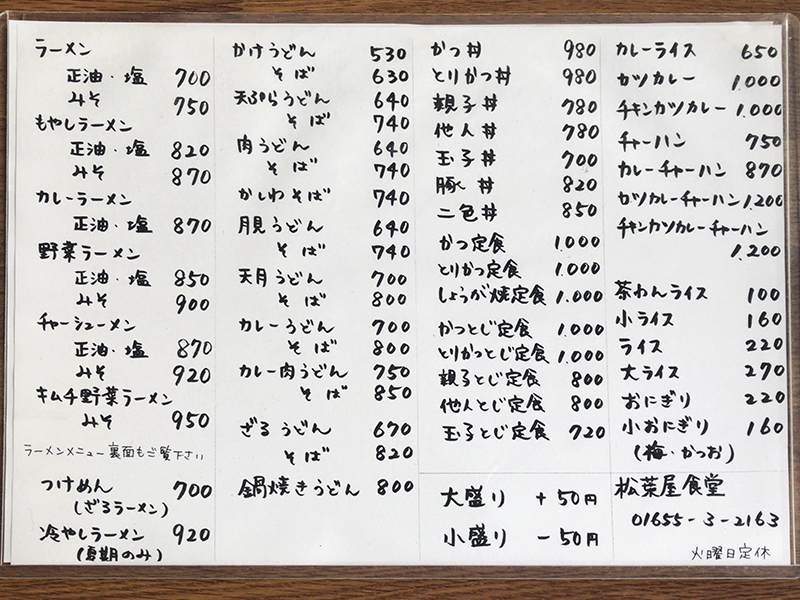 ラーメン
正油・塩 700
みそ 750
もやしラーメン
正油・塩 820
みそ 870
カレーラーメン
正油・塩 870
野菜ラーメン
正油・塩 850
みそ 900
チャーシューメン
正油・塩 870
みそ 920
キムチ野菜ラーメン
みそ 950
ラーメンメニュー裏面もご覧下さい
つけめん 700
(ざるラーメン)
冷やしラーメン 920
(夏期のみ)
かけうどん 530
そば 630
天ぷらうどん 640
そば 740
肉うどん 640
そば 740
かしわそば 740
月見うどん 640
そば 740
天月うどん 700
そば 800
カレーうどん 700
そば 800
カレー肉うどん 750
そば 850
ざるうどん 670
そば 820
鍋焼きうどん 800
かつ丼 980
とりかつ丼 980
親子丼 780
他人丼 780
玉子丼 700
豚丼 820
二色丼 850
かつ定食 1.000
とりかつ定食 1.000
しょうが焼定食 1.000
かつとじ定食 1.000
とりかつとじ定食 1.000
親子とじ定食 800
他人とじ定食 800
玉子とじ定食 720
大盛り +50円
小盛り -50円
カレーライス 650
カツカレー 1.000
チキンカツカレー 1.000
チャーハン 750
カレーチャーハン 870
カツカレーチャーハン 1.200
チキンカツカレーチャーハン
1.200
茶わんライス 100
小ライス 160
ライス 220
大ライス 270
おにぎり 220
小おにぎり 160
(梅・かつお)
松葉屋食堂
01655-3-2163
火曜日定休